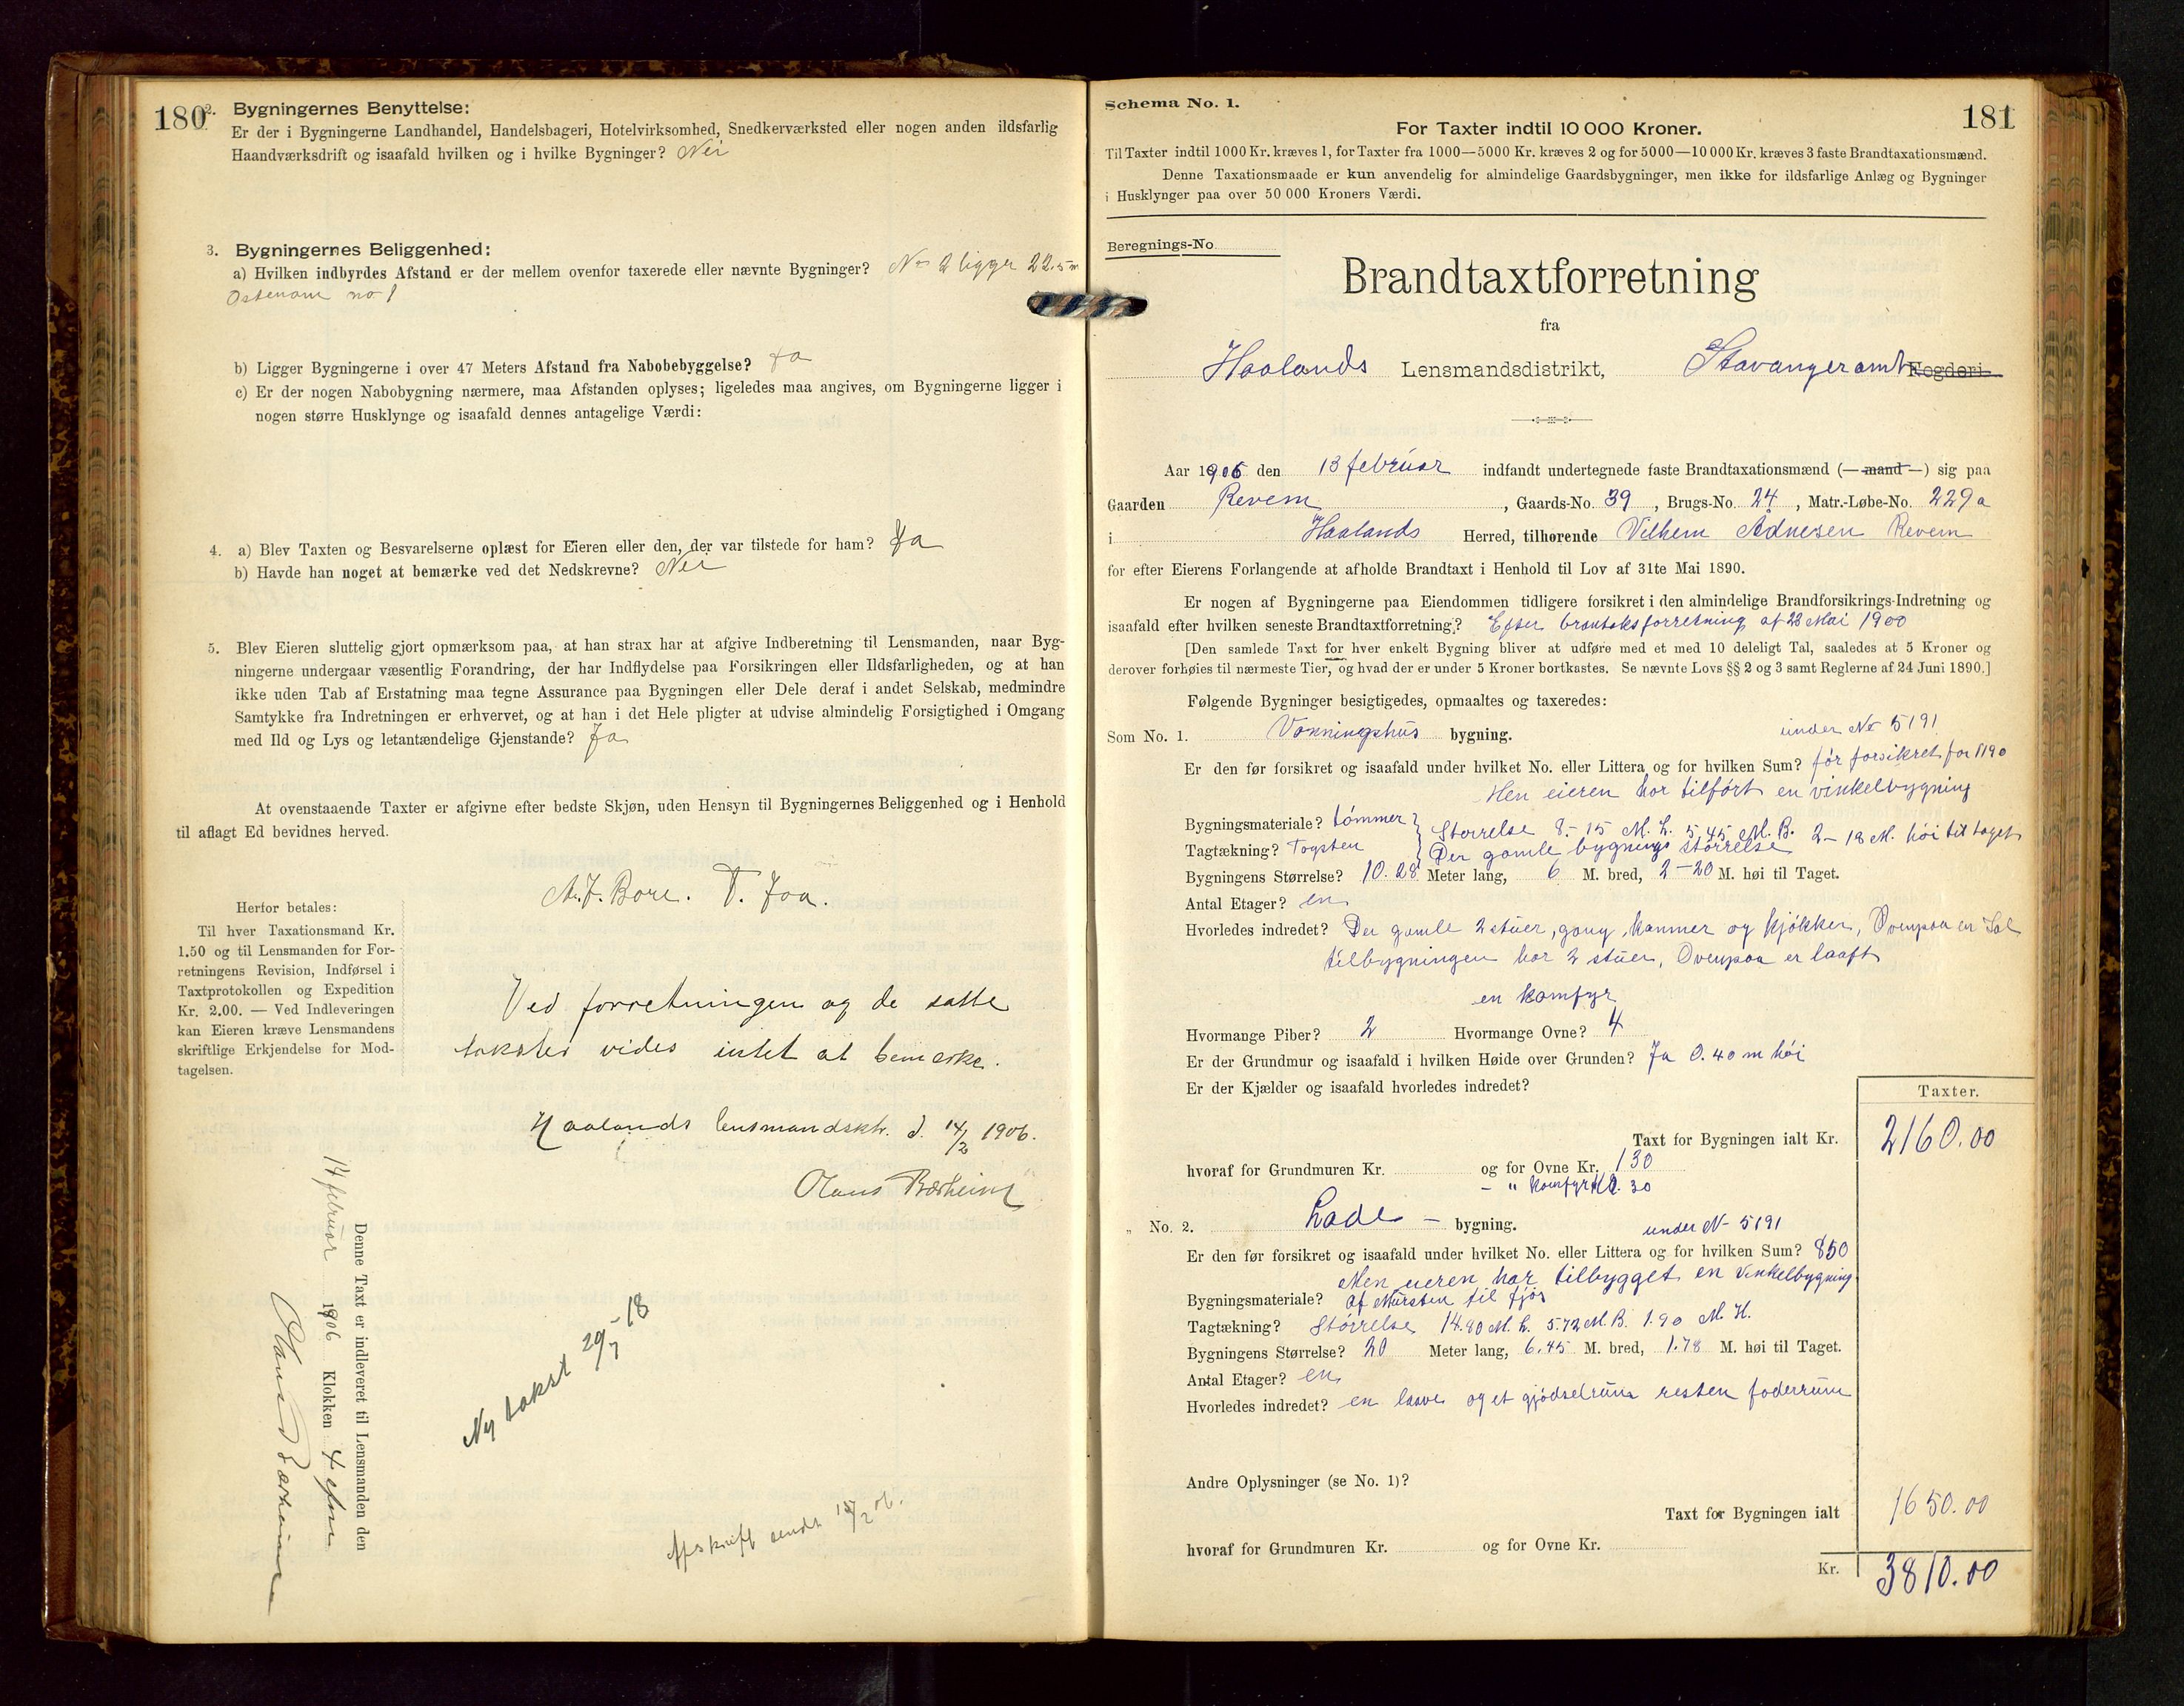 180
2. Bygningernes Benyttelse:
Er der i Bygningerne Landhandel, Handelsbageri, Hotelvirksomhed, Snedkerværksted eller nogen anden ildsfarlig
Haandværksdrift og isaafald hvilken og i hvilke Bygninger? Nei
3. Bygningernes Beliggenhed:
a) Hvilken indbyrdes Afstand er der mellem ovenfor taxerede eller nævnte Bygninger? No 2 ligger 22.5 m
Ostenom no 1
b) Ligger Bygningerne i over 47 Meters Afstand fra Nabobebyggelse? Ja
c) Er der nogen Nabobygning nærmere, maa Afstanden oplyses; ligeledes maa angives, om Bygningerne ligger i
nogen større Husklynge og isaafald dennes antagelige Værdi:
4. a) Blev Taxten og Besvarelserne oplæst for Eieren eller den, der var tilstede for ham? Ja
b) Havde han noget at bemærke ved det Nedskrevne? Nei
5. Blev Eieren sluttelig gjort opmærksom paa, at han strax har at afgive Indberetning til Lensmanden, naar Byg-
ningerne undergaar væsentlig Forandring, der har Indflydelse paa Forsikringen eller Ildsfarligheden, og at han
ikke uden Tab af Erstatning maa tegne Assurance paa Bygningen eller Dele deraf i andet Selskab, medmindre
Samtykke fra Indretningen er erhvervet, og at han i det Hele pligter at udvise almindelig Forsigtighed i Omgang
med Ild og Lys og letantændelige Gjenstande? Ja
At ovenstaaende Taxter er afgivne efter bedste Skjøn, uden Hensyn til Bygningernes Beliggenhed og i Henhold
til aflagt Ed bevidnes herved.
Bore. T. Joa.
Herfor betales:
Til hver Taxationsmand Kr.
1.50 og til Lensmanden for For-
retningens Revision, Indførsel i
Taxtprotokollen og Expedition
Kr. 2.00. — Ved Indleveringen
kan Eieren kræve Lensmandens
skriftlige Erkjendelse for Mod-
tagelsen.
Ved forretningen og de satte
takster vides intet at bemerke.
Haalands lensmandsktr. d. 14/2 1906.
Olaus Bærheim
Denne Taxt er indleveret til Lensmanden den
14 februar 1906 Klokken 4 efm
Olaus Bærheim
Ny takst 29/7 - 18
Afskrift sendt 15/2 06.
Schema No. 1.
181
For Taxter indtil 10 000 Kroner.
Til Taxter indtil 1000 Kr. kræves 1, for Taxter fra 1000—5000 Kr. kræves 2 og for 5000—10 000 Kr. kræves 3 faste Brandtaxationsmænd.
Denne Taxationsmaade er kun anvendelig for almindelige Gaardsbygninger, men ikke for ildsfarlige Anlæg og Bygninger
i Husklynger paa over 50 000 Kroners Værdi.
Beregnings-No
Brandtaxtforretning
fra
Haalands Lensmandsdistrikt, Stavanger amt Fogderi
Aar 1906 den 13 februar indfandt undertegnede faste Brandtaxationsmænd (— mand —) sig paa
Gaarden Revem, Gaards-No. 39, Brugs-No. 24, Matr.-Løbe-No. 229a
i Haalands Herred, tilhørende Vilhem Ådnesen Revem
for efter Eierens Forlangende at afholde Brandtaxt i Henhold til Lov af 31te Mai 1890.
Er nogen af Bygningerne paa Eiendommen tidligere forsikret i den almindelige Brandforsikrings-Indretning og
isaafald efter hvilken seneste Brandtaxtforretning? Efter brantaksforretning af 28 Mai 1900
[Den samlede Taxt for hver enkelt Bygning bliver at udføre med et med 10 deleligt Tal, saaledes at 5 Kroner og
derover forhøies til nærmeste Tier, og hvad der er under 5 Kroner bortkastes. Se nævnte Lovs §§ 2 og 3 samt Reglerne af 24 Juni 1890.]
Følgende Bygninger besigtigedes, opmaaltes og taxeredes:
Som No. 1. Vonningshus bygning. under No 5191
Er den før forsikret og isaafald under hvilket No. eller Littera og for hvilken Sum? før forsikret for 1190
Men eieren har tilført en vinkelbygning
Bygningsmateriale? tømmer Størrelse 8-15 M. L. 5,45 M. B. 2-18 M. høi til taget
Tagtækning? Tagsten Der gamle bygnings størrelse
Bygningens Størrelse? 10.28 Meter lang, 6 M. bred, 2-20 M. høi til Taget.
Antal Etager? en
Hvorledes indredet? Der gamle 2 stuer, gang, kammer og kjøkken, Ovenpaa er Sal
tilbygningen har 2 stuer, Ovenpaa er laaft
en komfyr
Hvormange Piber? 2 Hvormange Ovne? 4
Er der Grundmur og isaafald i hvilken Høide over Grunden? Ja 0.40 m høi
Er der Kjælder og isaafald hvorledes indredet?
Taxter.
Taxt for Bygningen ialt Kr. 2160.00
hvoraf for Grundmuren Kr. og for Ovne Kr. 130
- " komfyr Kr. 30
" No. 2. Lade - bygning. under N- 5191
Er den før forsikret og isaafald under hvilket No. eller Littera og for hvilken Sum? 850
Men eieren har tilbygget en Vinkelbygning
Bygningsmateriale? af Mursten til fjøs
Tagtækning? Størrelse 14.80 M. L. 5.72 M. B. 1.90 M. H.
Bygningens Størrelse? 20 Meter lang, 6.45 M. bred, 1.78 M. høi til Taget.
Antal Etager? en
Hvorledes indredet? en laave og et gjødselrum resten foderrum
Andre Oplysninger (se No. 1)?
Taxt for Bygningen ialt 1650.00
hvoraf for Grundmuren Kr. og for Ovne Kr.
Kr. 3810.00